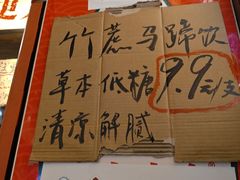 竹蔗马蹄饮
草本低糖 9.9元/支
清凉解腻